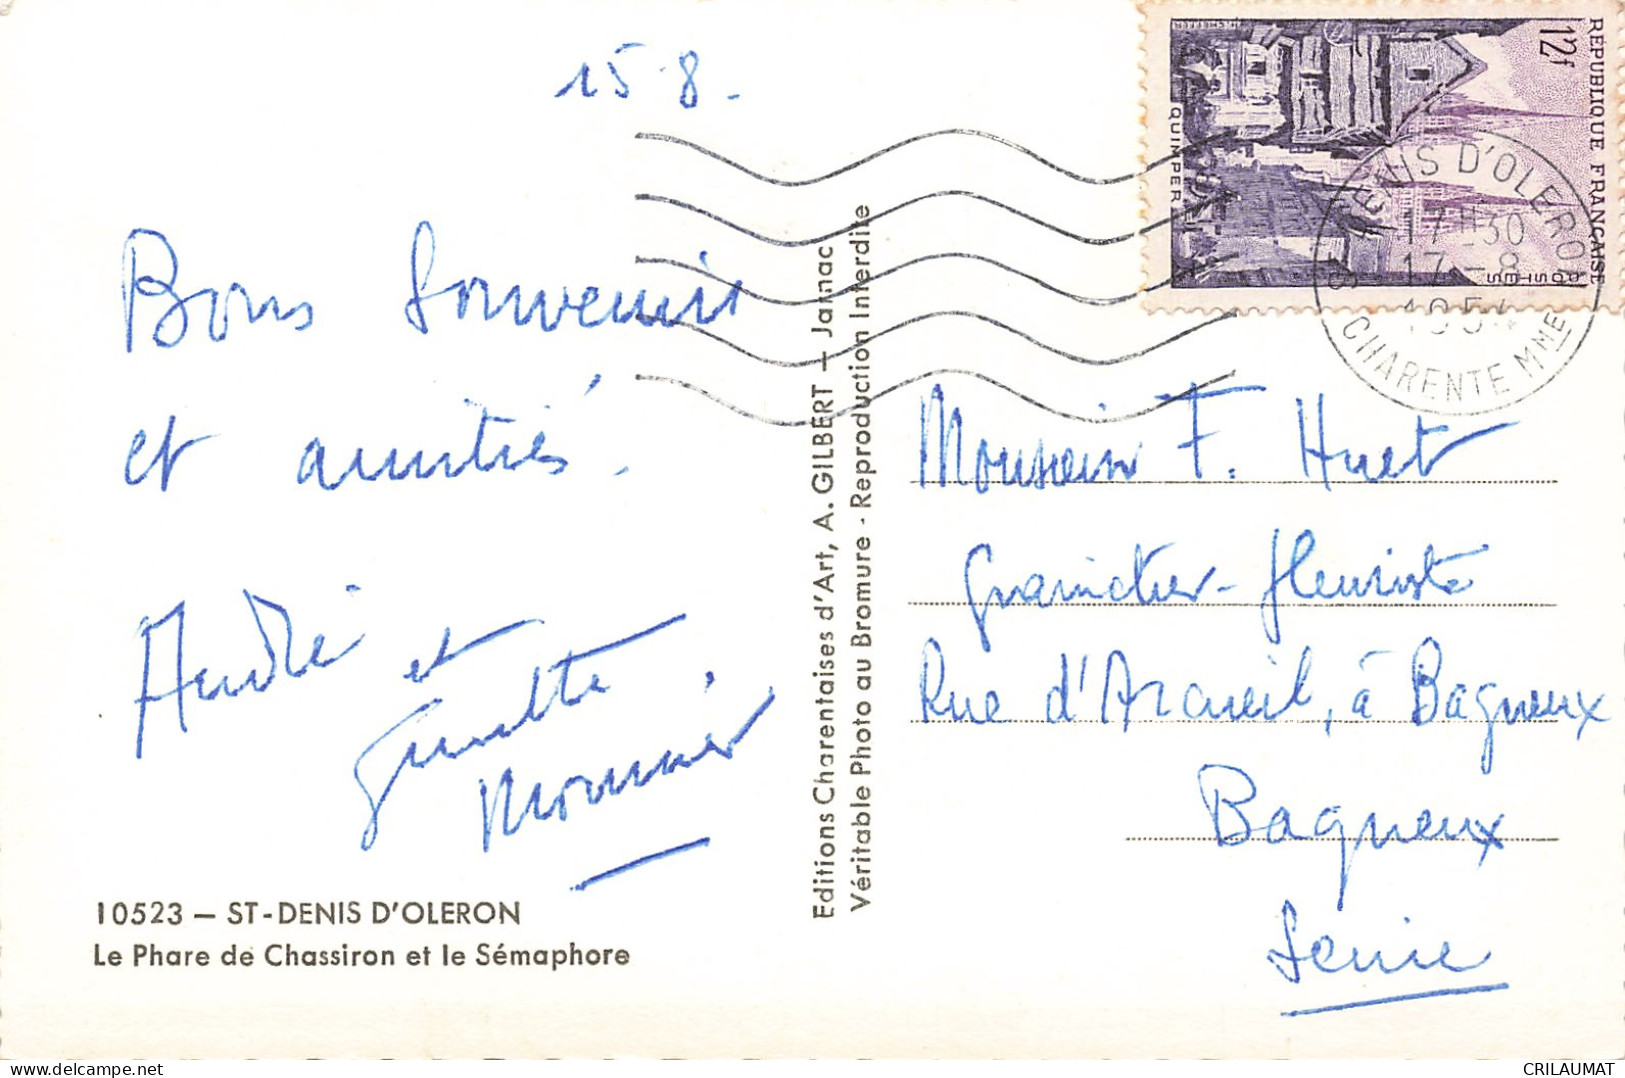 15.8.
Bons Souvenirs
et amitiés.
André
et
Monnier
10523 — ST-DENIS D'OLERON
Le Phare de Chassiron et le Sémaphore
Editions Charentaises d'Art, A. GILBERT — Jarnac
Véritable Photo au Bromure - Reproduction Interdite
REPUBLIQUE FRANÇAISE
12f
POSTES
QUIMPER
ST DENIS D'OLERON
17-30
17 - 8
1954
CHARENTE MME
Monsieur F. Huet
Grainetier-fleuriste
Rue d'Arcueil, à Bagneux
Bagneux
Seine
CRILAUMAT